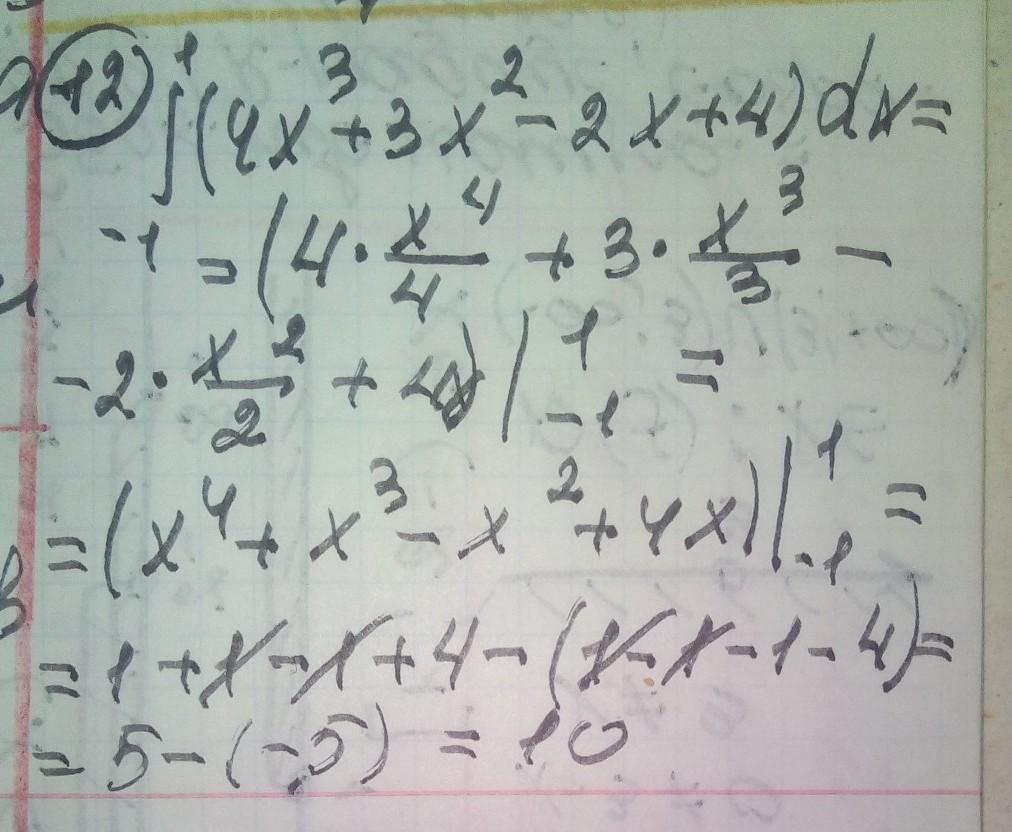 +2) ∫₋₁¹ (4x³ + 3x² - 2x + 4) dx =
= (4 · x⁴/4 + 3 · x³/3 -
- 2 · x²/2 + 4x) |₋₁¹ =
= (x⁴ + x³ - x² + 4x) |₋₁¹ =
= 1 + 1 - 1 + 4 - (1 - 1 - 1 - 4) =
= 5 - (-5) = 10